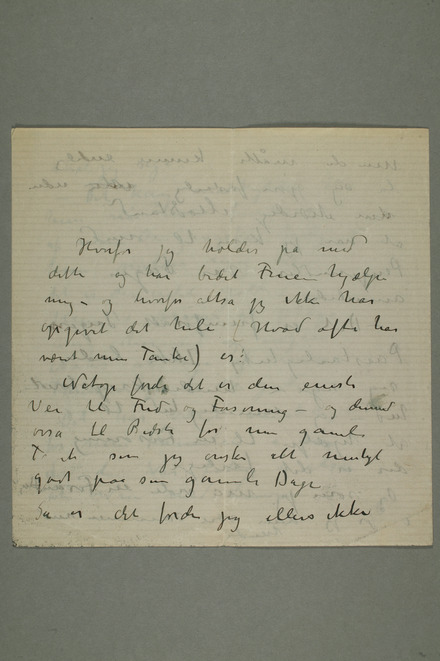 Hvorfor jeg holder på med
dette og har bedet Fruen hjælpe
mig – og hvorfor altsa jeg ikke har
opgivet det hele (Hvad ofte har
været min Tanke) er:
Netop fordi det er den eneste
Vei til Fred og Forsoning – og dermed
ossa til Bedste for min gamle
som jeg ønsker alt muligt
godt paa sine gamle Dage
Sa er det fordi jeg ellers ikke